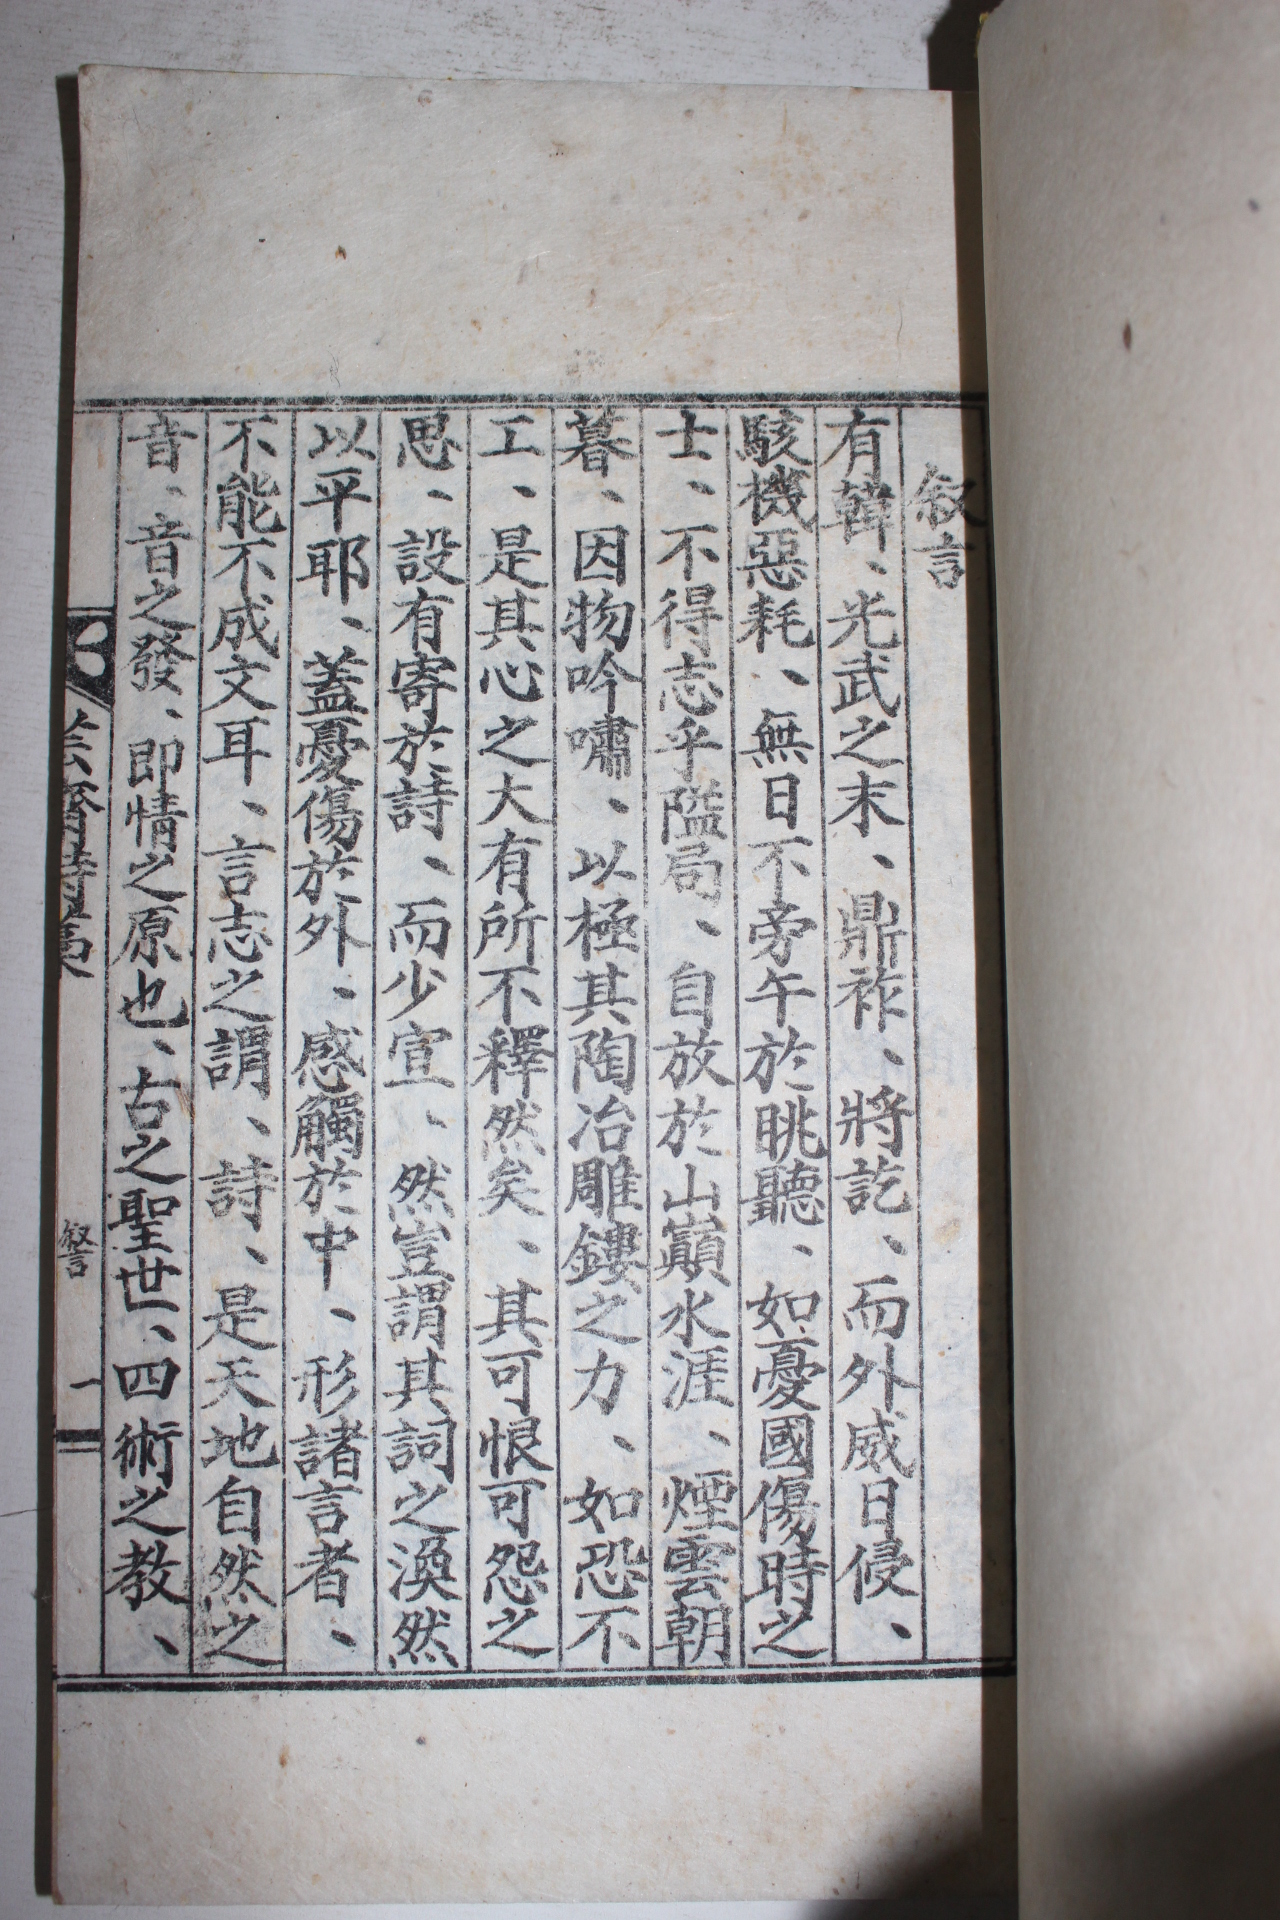 叙言
有韓、光武之末、鼎祚、將訖、而外威日侵、
駭機惡耗、無日不旁午於眺聽、如憂國傷時之
士、不得志乎隘局、自放於山巓水涯、煙雲朝
暮、因物吟嘯、以極其陶冶雕鏤之力、如恐不
工、是其心之大有所不釋然矣、其可恨可怨之
思、設有寄於詩、而少宣、然豈謂其詞之渙然
以平耶、蓋憂傷於外、感觸於中、形諸言者、
不能不成文耳、言志之謂、詩、是天地自然之
音、音之發、即情之原也、古之聖世、四術之教、
叙言
一